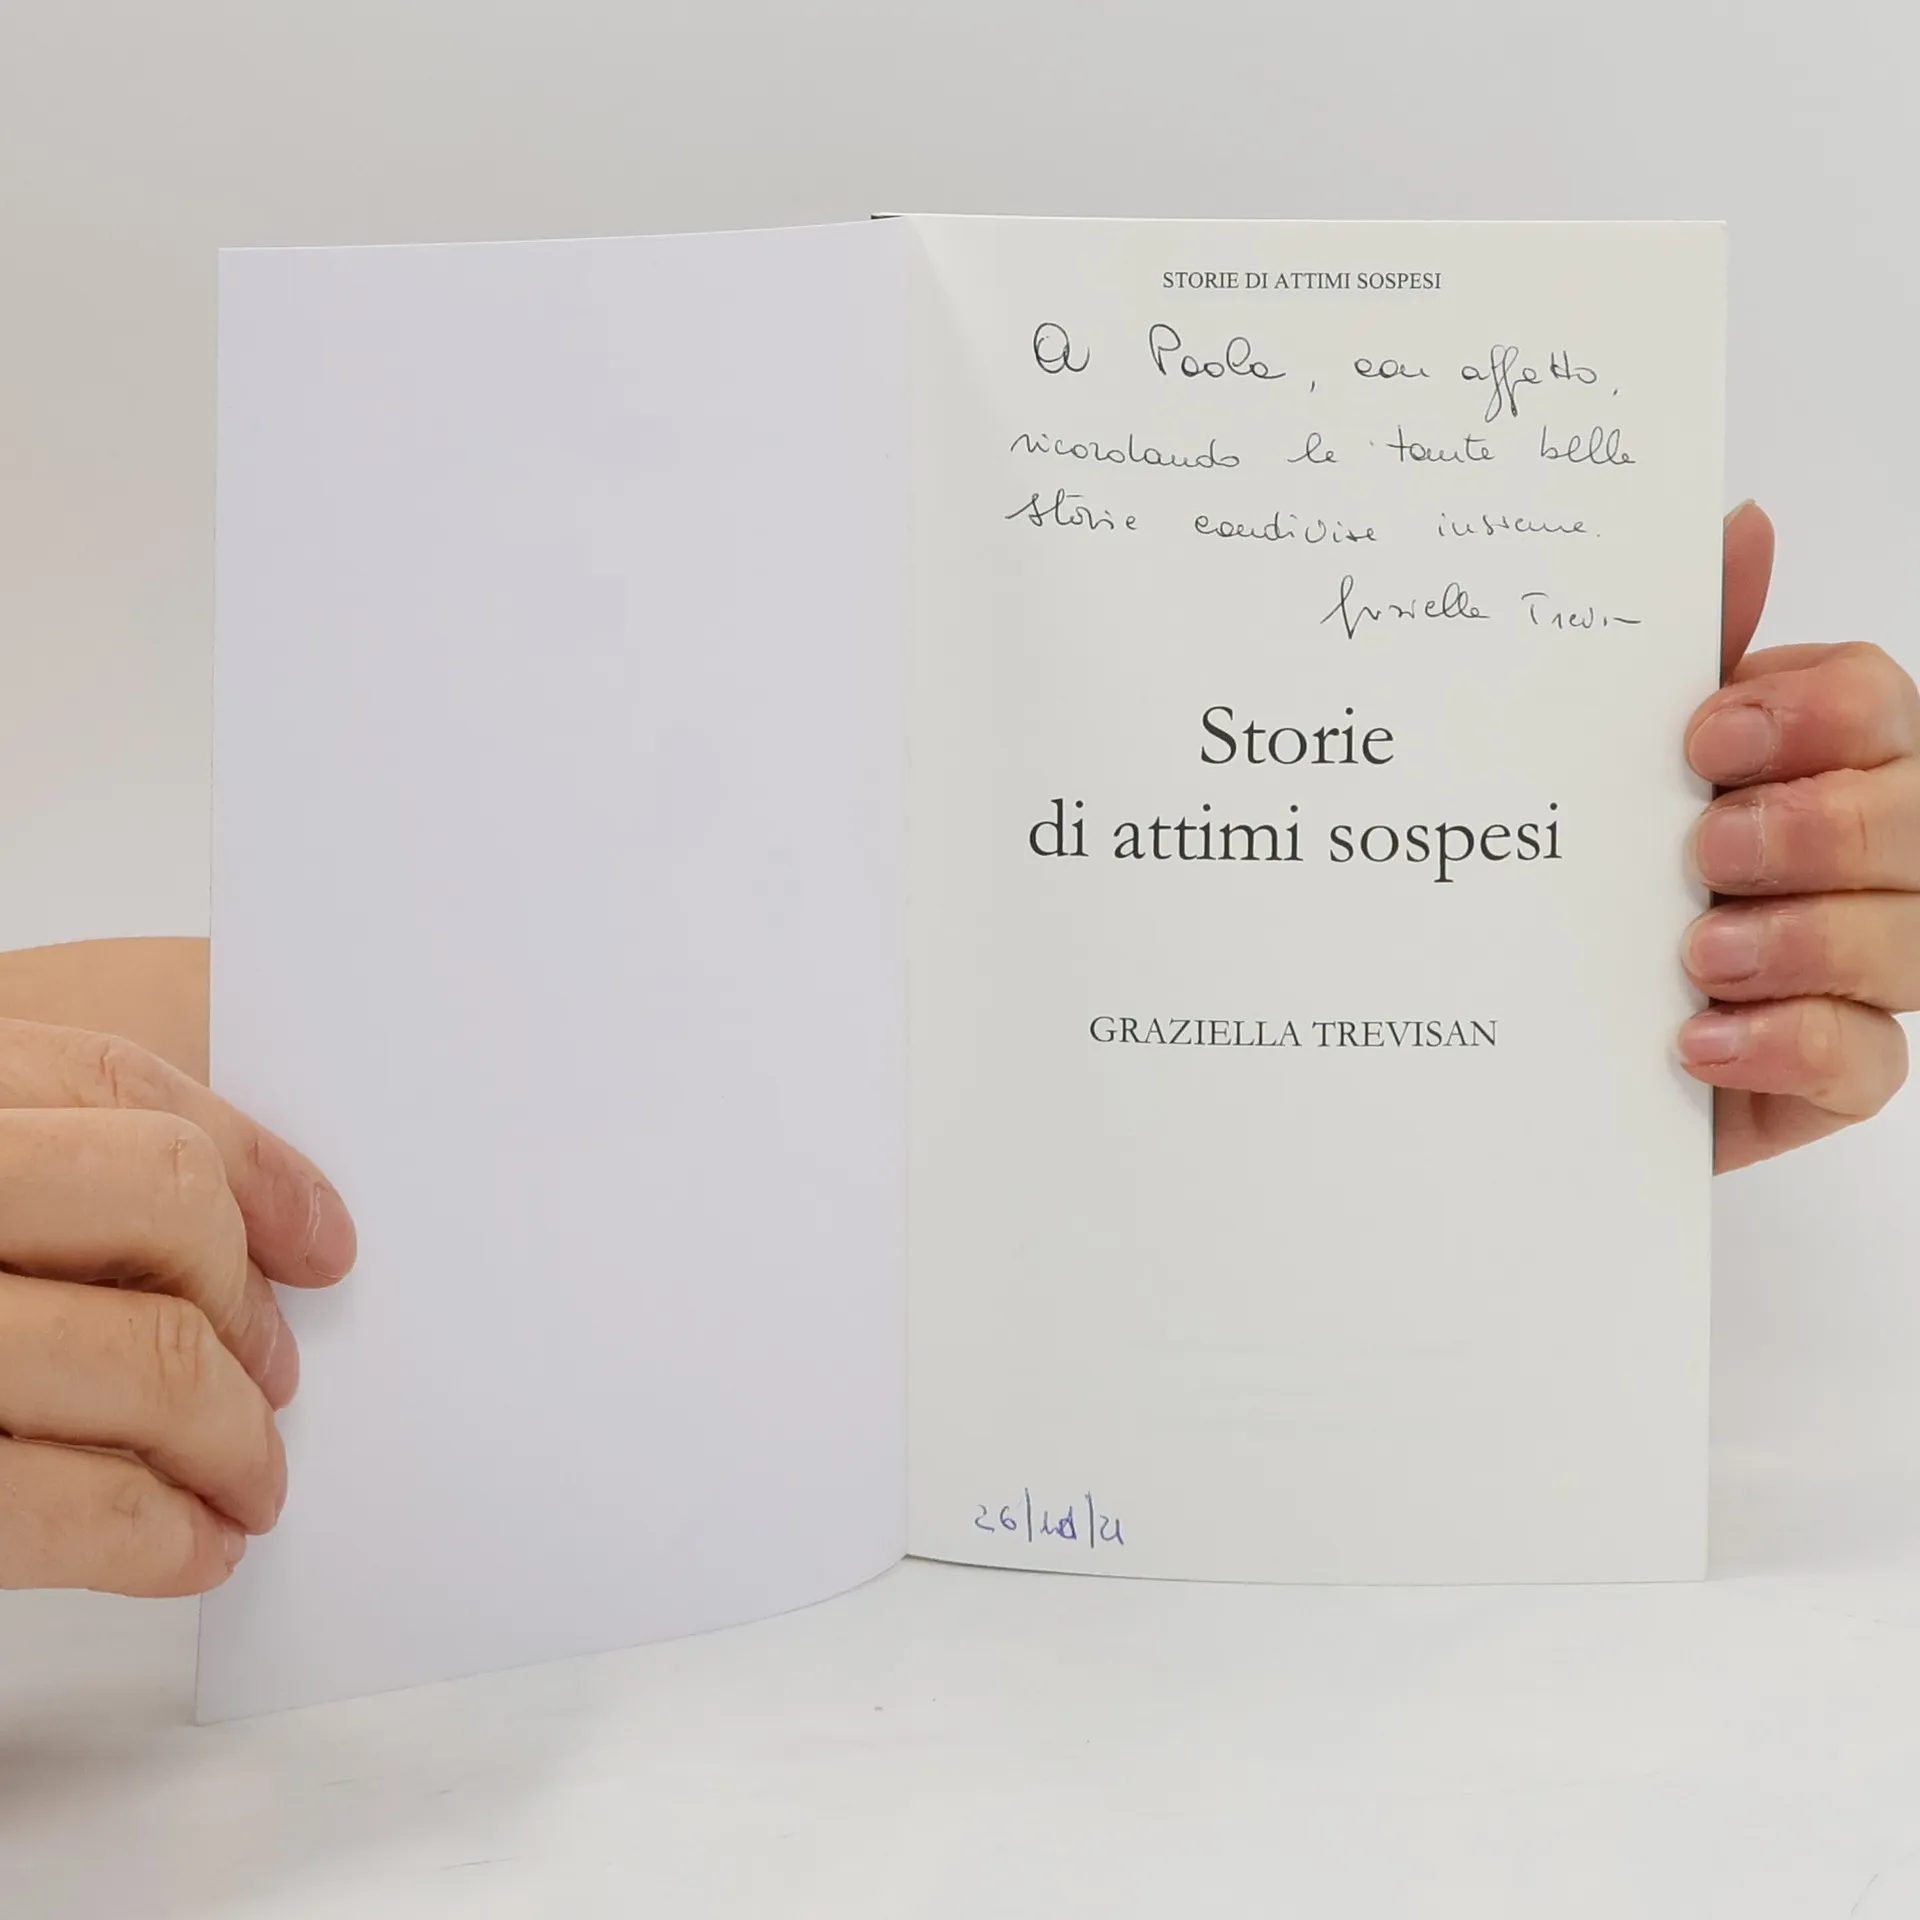 STORIE DI ATTIMI SOSPESI
A Paola, con affetto,
ricordando le tante belle
storie condivise insieme.
Graziella Trevisan
Storie
di attimi sospesi
GRAZIELLA TREVISAN
26/ /21